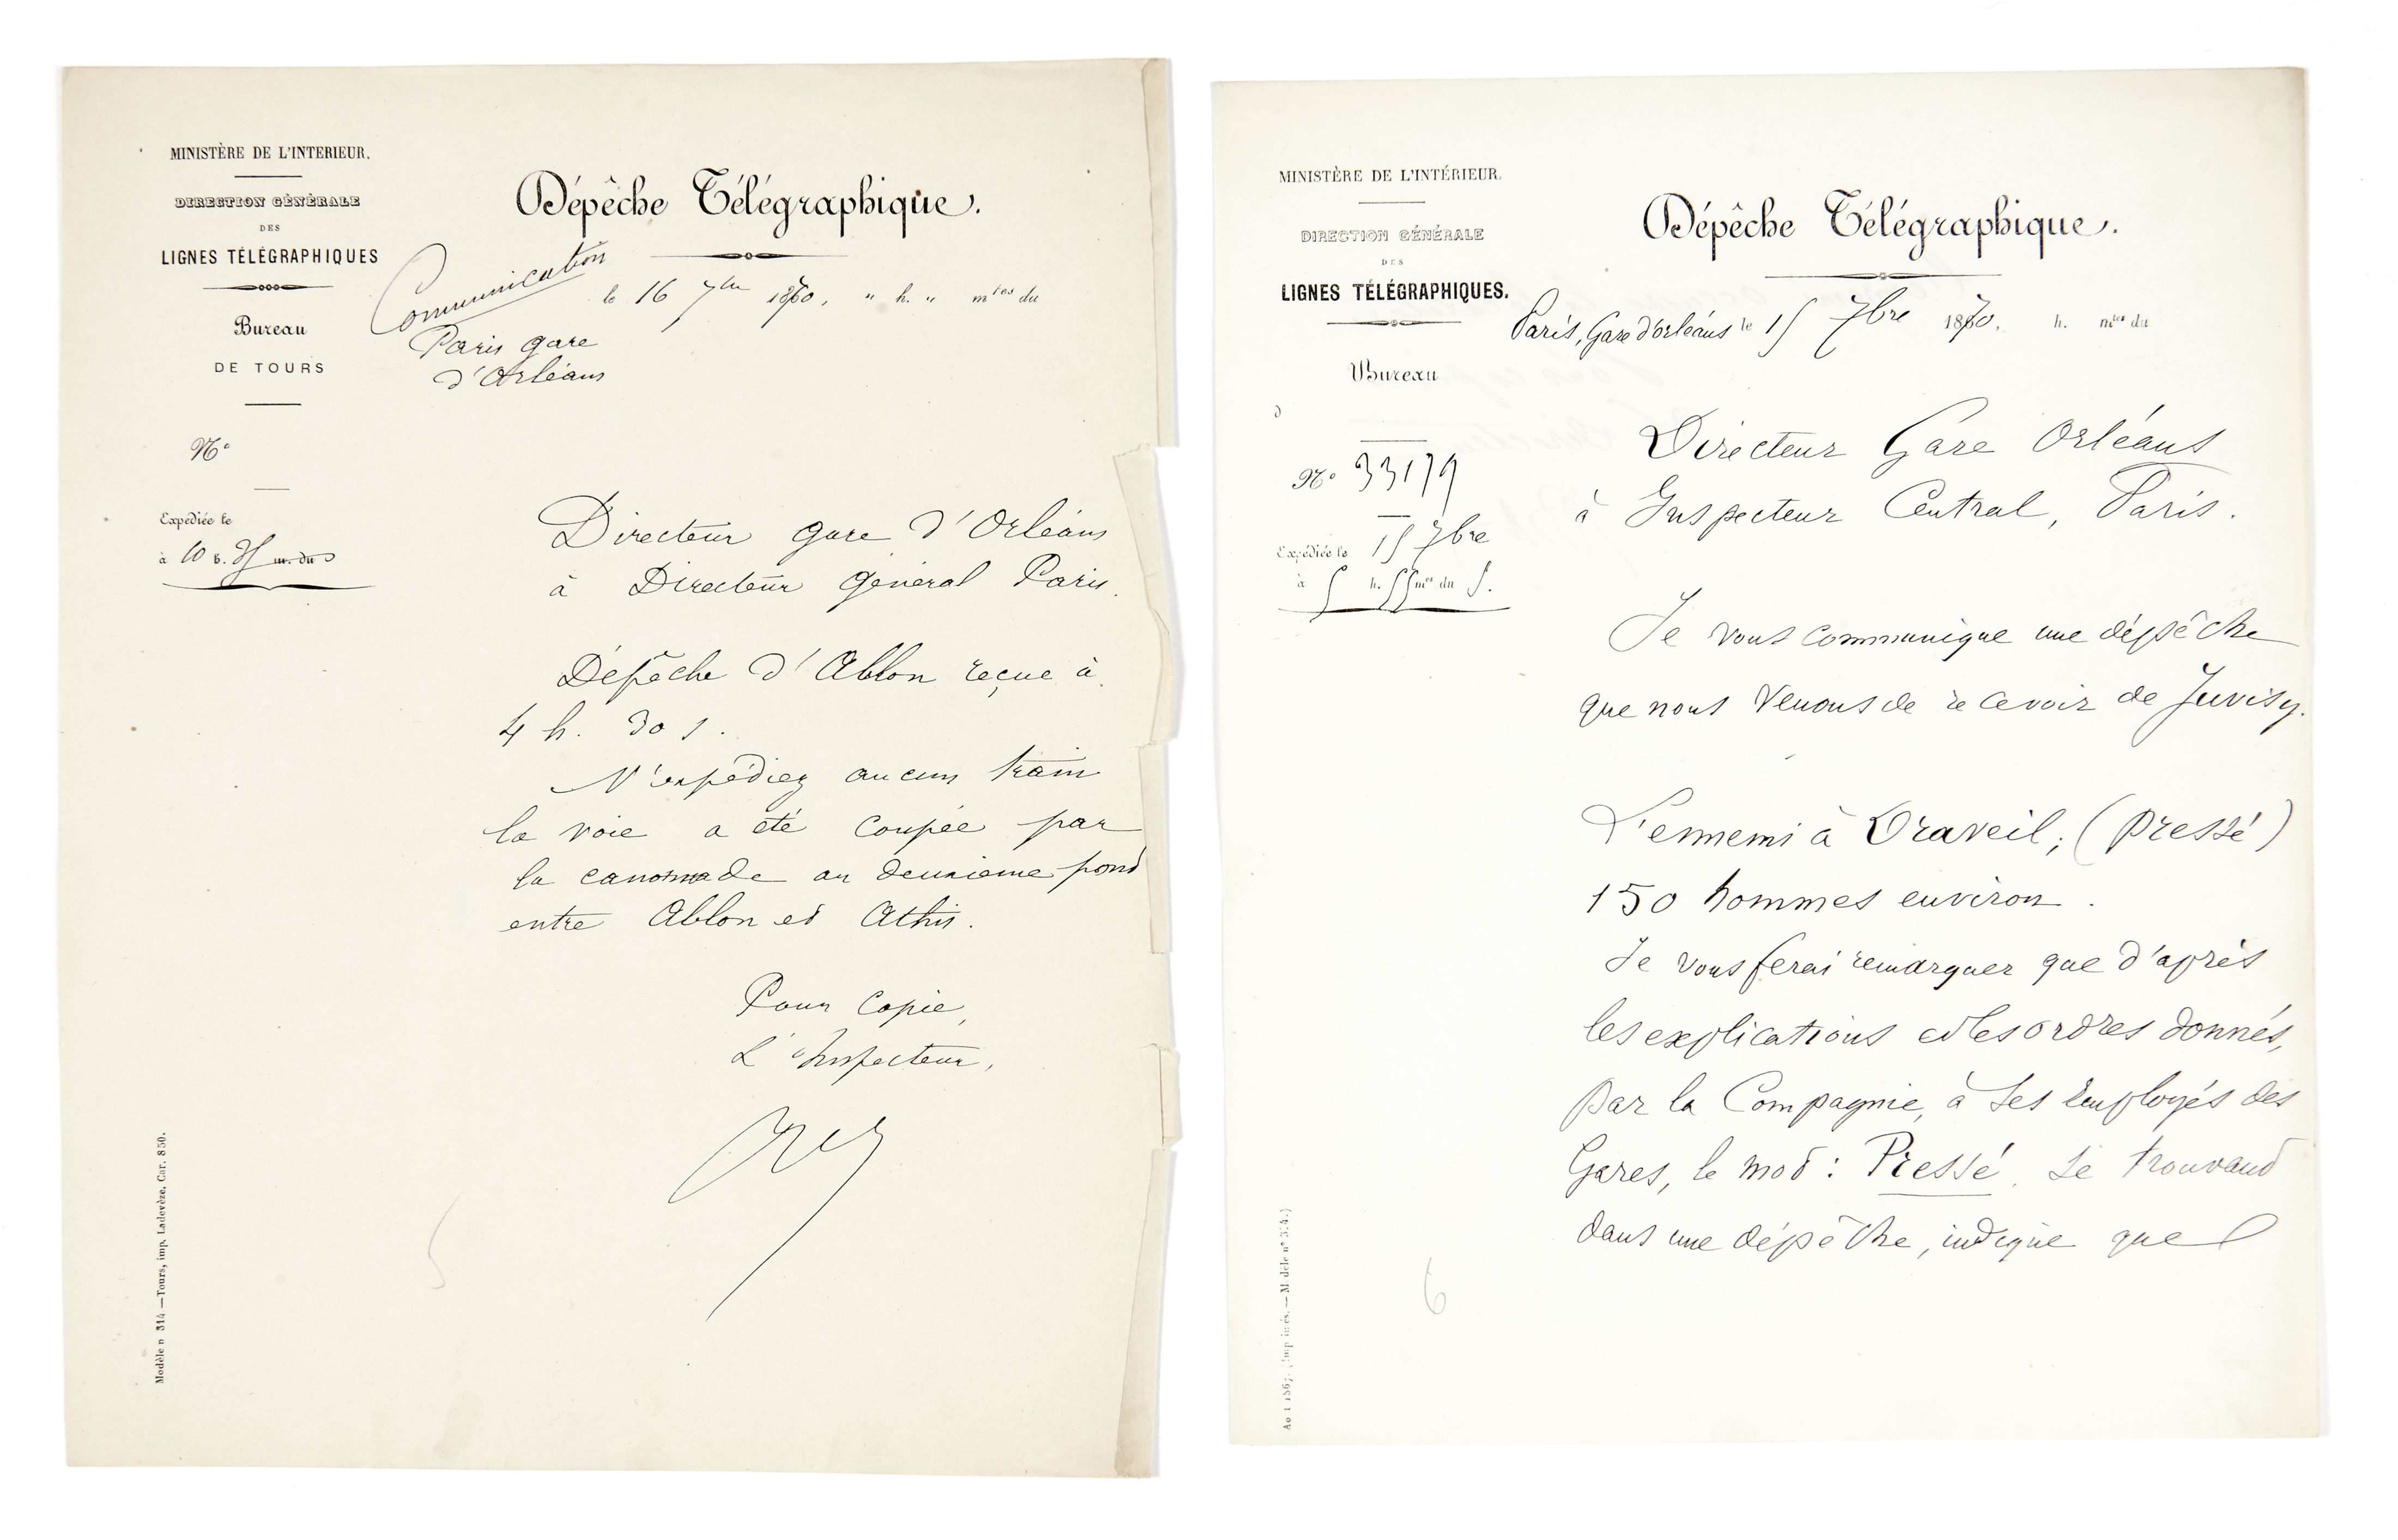 MINISTÈRE DE L'INTERIEUR.
DIRECTION GÉNÉRALE
DES
LIGNES TÉLÉGRAPHIQUES
Bureau
DE TOURS
N°
Expédiée le
à 10 h. 35 m. du
Dépêche Télégraphique.
Communication
le 16 7bre 1870, " h. " mtes du
Paris gare
d'Orléans
Directeur gare d'Orléans
à Directeur général Paris.
Dépêche d'Ablon reçue à
4 h. 30 s.
N'expédiez aucun train
la voie a été coupée par
la canonnade au deuxième pont
entre Ablon et Athis.
Pour Copie,
L'Inspecteur,
5
Modèle n 314 — Tours, imp. Ladevèze. Car. 850.
MINISTÈRE DE L'INTÉRIEUR.
DIRECTION GÉNÉRALE
DES
LIGNES TÉLÉGRAPHIQUES.
Bureau
N° 33179
Expédiée le 15 7bre
à 5 h. 55 mes du S.
Dépêche Télégraphique.
Paris, Gare d'orléans le 15 7bre 1870, h. mtes du
Directeur Gare Orléans
à Inspecteur Central, Paris.
Je vous communique une dépêche
que nous venons de recevoir de Juvisy.
L'ennemi à Draveil; (pressé)
150 hommes environ.
Je vous ferai remarquer que d'après
les explications et les ordres donnés,
par la Compagnie, à ses employés des
Gares, le mot : Pressé se trouvant
dans une dépêche, indique que
6